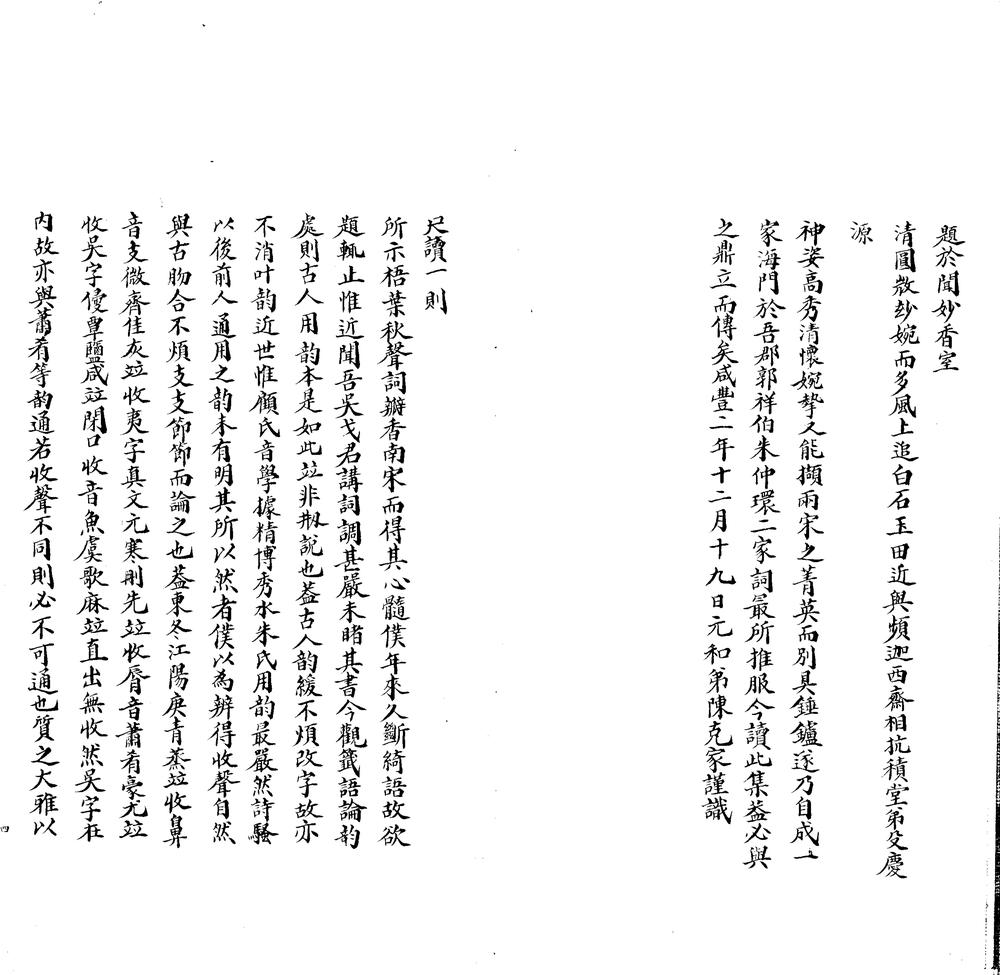 題於聞妙香室
清圓敚玅婉而多風上追白石玉田近與頻迦西齋相抗積堂弟殳慶
源
神姿高秀清懷婉摯又能擷兩宋之菁英而別具錘鑪遂乃自成一
家海門於吾郡郭祥伯朱仲環二家詞最所推服今讀此集益必與
之鼎立而傳矣咸豐二年十二月十九日元和弟陳克家謹識
尺讀一則
所示梧葉秋聲詞瓣香南宋而得其心髓僕年來久斷綺語故欲
題輒止惟近聞吾吳戈君講詞調甚嚴未睹其書今觀籤語論韵
處則古人用韵本是如此竝非刱說也葢古人韵緩不煩改字故亦
不消叶韵近世惟顧氏音學據精博秀水朱氏用韵最嚴然詩騷
以後前人通用之韵未有明其所以然者僕以為辨得收聲自然
與古肳合不煩支支節節而論之也葢東冬江陽庚青蒸竝收鼻
音支微齊佳灰竝收夷字真文元寒刪先竝收脣音蕭肴豪尤竝
收吳字優覃鹽咸竝閉口收音魚虞歌麻竝直出無收然吳字在
內故亦與蕭肴等韵通若收聲不同則必不可通也質之大雅以
四